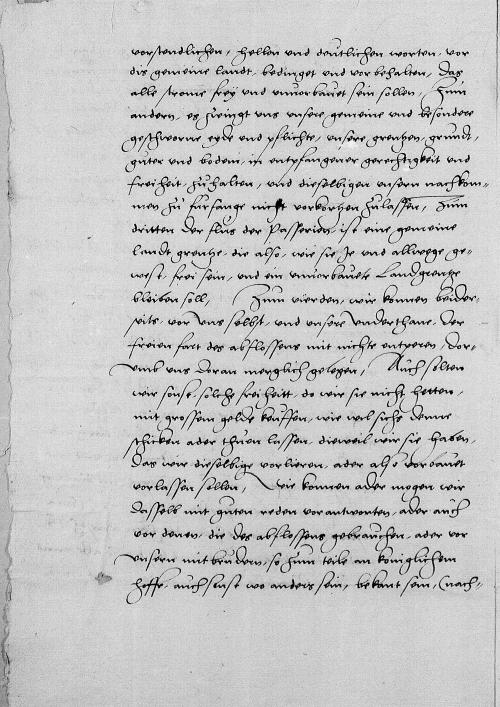 vorstendlichen, hellen und deutlichen worten, vor
dis gemeine landt, bedinget und vorbehalten, Das
alle strome frey und unvorbauet sein sollen, Zum
andern, es zwingt uns unsere gemeine und besondere
geschworne eyde und pflichte, unsere grentzen, grundt,
guter und bodem, in entpfangener gerechtigkeit und
freiheit, zuhalten, und dieselbigen unsern nachkom-
men zu furfange nicht vorkortzen zulassen, Zum
dritten der flus der Passerien, ist eine gemeine
landt grentze, die also, wie sie Je und allwege ge-
west, frei sein, und ein unvorbauete Landgrentze
bleiben soll, Zum vierden, wir konnen beider-
seits, vor uns selbst, und unsere underthane, der
freien fart des abflossens mit nichte entperen, dor-
umb uns doran merglich gelegen, Auch solten
wir sunst solche freiheitt, do wir sie nicht hetten,
mit grossem gelde keuffen, wie wil sichs denne
schicken ader thuen lassen, dieweil wir sie haben,
das wir dieselbige vorlieren, ader also vorbauet
vorlassen sollen, wie konnen ader mogen wir
dasselb mit guten reden vorantworten, ader auch
vor denen, die des abflossens gebrauchen, ader vor
unsern mitbrudern, so zum teile an koniglichem
hoffe, auch sunst wo anders sein, bekant sein, (nach-